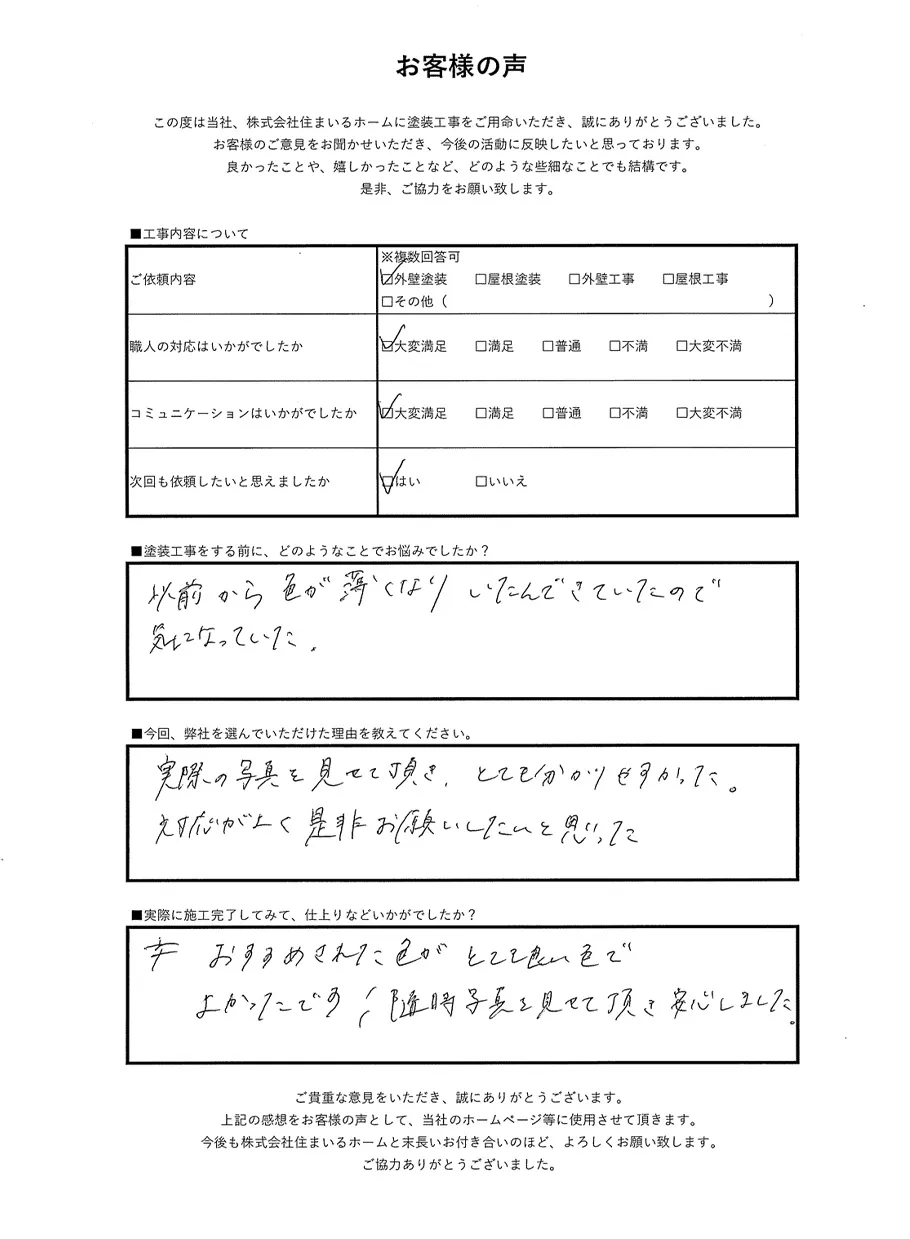 お客様の声
この度は当社、株式会社住まいるホームに塗装工事をご用命いただき、誠にありがとうございました。
お客様のご意見をお聞かせいただき、今後の活動に反映したいと思っております。
良かったことや、嬉しかったことなど、どのような些細なことでも結構です。
是非、ご協力をお願い致します。
■工事内容について
ご依頼内容
※複数回答可
☑外壁塗装 □屋根塗装 □外壁工事 □屋根工事
□その他（ ）
職人の対応はいかがでしたか ☑大変満足 □満足 □普通 □不満 □大変不満
コミュニケーションはいかがでしたか ☑大変満足 □満足 □普通 □不満 □大変不満
次回も依頼したいと思えましたか ☑はい □いいえ
■塗装工事をする前に、どのようなことでお悩みでしたか？
以前から色が薄くなり いたんできていたので
気になっていた.
■今回、弊社を選んでいただけた理由を教えてください。
実際の写真を見せて頂き、とても分かりやすかった。
対応がよく是非お願いしたいと思った
■実際に施工完了してみて、仕上りなどいかがでしたか？
おすすめされた色が とても良い色で
よかったです! 随時写真を見せて頂き 安心しました。
ご貴重な意見をいただき、誠にありがとうございます。
上記の感想をお客様の声として、当社のホームページ等に使用させて頂きます。
今後も株式会社住まいるホームと末長いお付き合いのほど、よろしくお願い致します。
ご協力ありがとうございました。